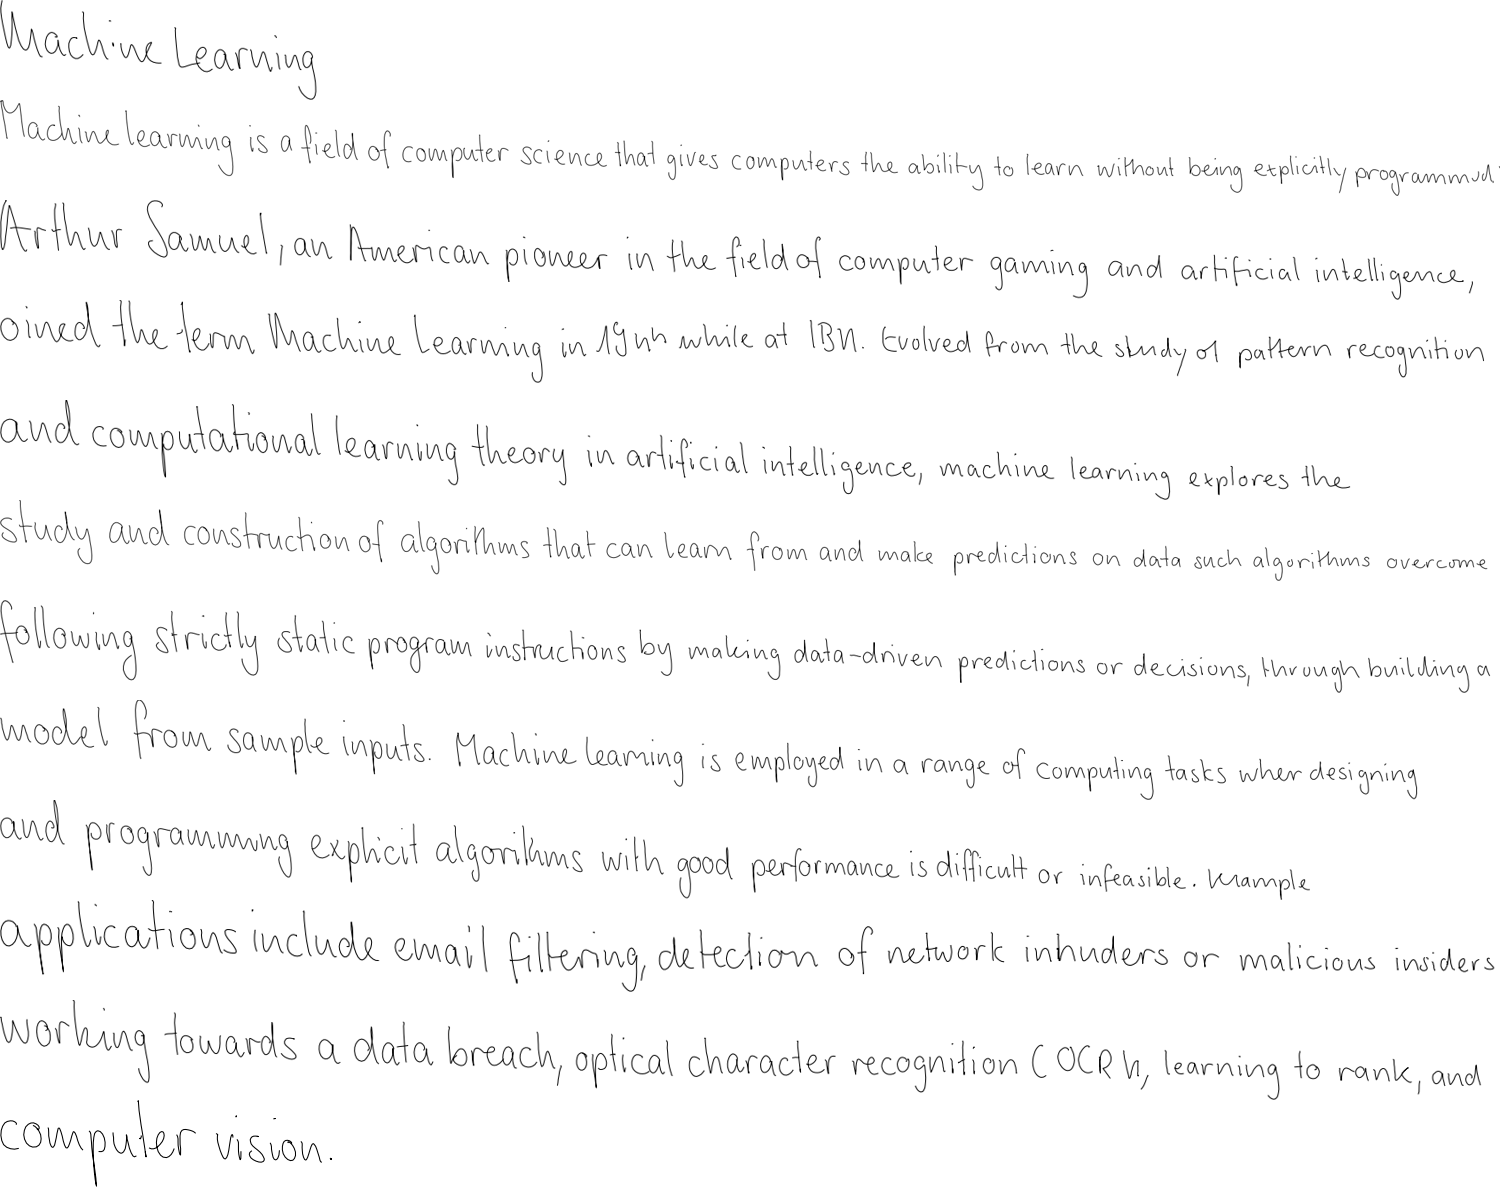 Machine Learning
Machine learning is a field of computer science that gives computers the ability to learn without being explicitly programmud.
Arthur Samuel, an American pioneer in the field of computer gaming and artificial intelligence,
oined the term Machine Learning in while at IBN. Evolved from the study of pattern recognition
and computational learning theory in artificial intelligence, machine learning explores the
study and construction of algorithms that can learn from and make predictions on data such algorithms overcome
following strictly static program instructions by making data-driven predictions or decisions, through building a
model from sample inputs. Machine learning is employed in a range of computing tasks wher designing
and programming explicit algorithms with good performance is difficult or infeasible.
applications include email filtering, detection of network inhuders or malicious insiders
working towards a data breach, optical character recognition (OCR h, learning to rank, and
computer vision.